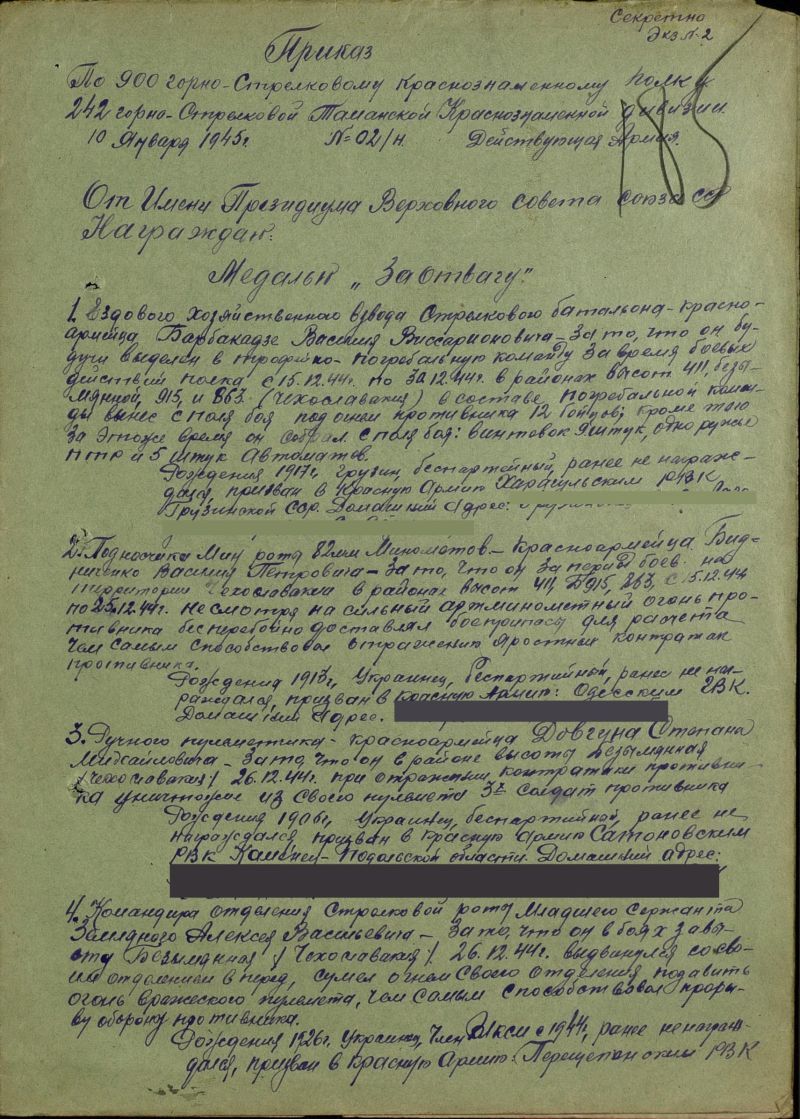 Секретно
Экз N-2
Приказ
По 900 горно-Стрелковому Краснознаменному полку
242 горно-Стрелковой Таманской Краснознаменной дивизии.
10 Января 1945г. №02/н. Действующая Армия.
От Имени Президиума Верховного совета союза ССР
Награждаю:
Медалью „За отвагу“:
1. Ездового хозяйственного взвода Стрелкового батальона - красно-
армейца Барбакадзе Василия Виссарионовича - За то, что он бу-
дучи выделен в трофейно-погребальную команду За время боевых
действий полка с 15.12.44г. по 30.12.44г. в районах высот 411, безы-
мянной, 915, и 863 (Чехославакия) в составе погребальной коман-
ды вынес с поля боя под огнем противника 12 бойцов; кроме того
За это же время он собрал с поля боя: винтовок штук, одно ружье
ПТР и 5 штук Автоматов.
Рождения 1917г, грузин, беспартейный, ранее не награж-
дался, призван в Красную Армию Харагульским РВК
Грузинской ССР. Домашний Адрес:
2. Подносчика Мин роты 82мм Минометов - Красноармейца Бид-
ниченко Василия Петровича - За то, что он За период боев на
территории Чехославакии в районах высот 411, 915, 863, с 15.12.44
по 25.12.44г. несмотря на сильный артминометный огонь про-
тивника бесперебойно доставлял боеприпасы для расчета
Чем самым способствовал отражению яростных контратак
противника.
Рождения 1913г, Украинец, беспартийный, ранее не наг-
раждался, призван в Красную Армию: Одесским ГВК.
Домашний Адрес.
3. Ручного пулеметчика - Красноармейца Довгуна Степана
Михайловича - За то, что он в районе высоты Безымянная
/Чехославакия/ 26.12.44г. при отражении контратаки противни-
ка уничтожил из своего пулемета 3х солдат противника
Рождения 1906г, Украинец, беспартейный, ранее не
награждался призван в Красную Армию Сатановским
РВК Каменец-Подольской области. Домашний адрес:
4. Командира отделения Стрелковой роты Младшего Сержанта
Алексея Васильевича - За то, что он в боях за вы-
соту Безымянная /Чехославакия/. 26.12.44г. выдвинулся со сво-
им отделением в перед, сумел огнем своего отделения подавить
огонь вражеского пулемета, чем самым способствовал проры-
ву обороны противника.
Рождения 1926г, Украинец, член ВЛКСМ с 1944г, ранее не награж-
дался, призван в Красную Армию: РВК